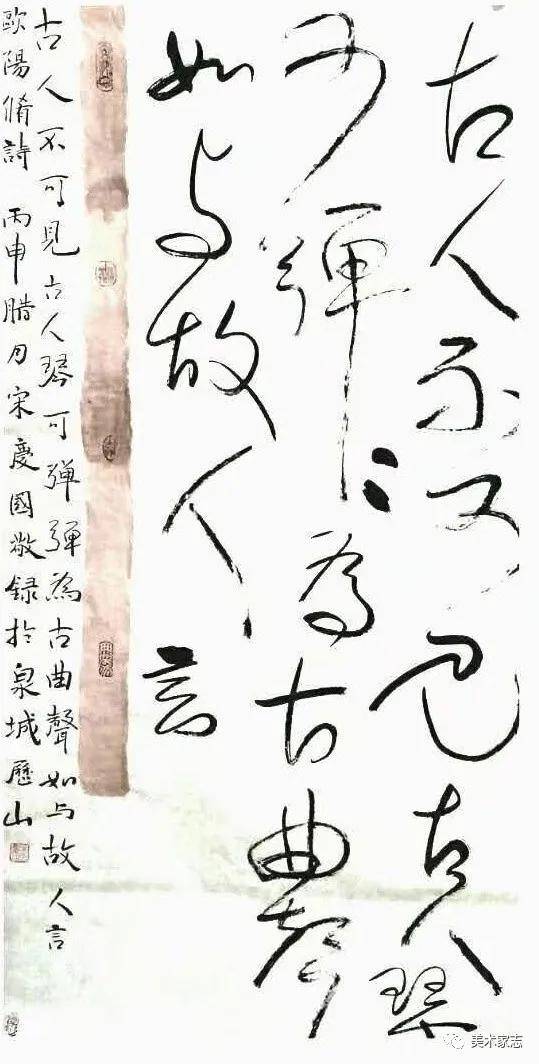 古人不可見古人琴
可彈彈為古曲聲
如与故人言
古人不可見古人琴可彈彈為古曲聲如与故人言
歐陽脩詩 丙申腊月宋慶國敬録於泉城歷山
美术家志